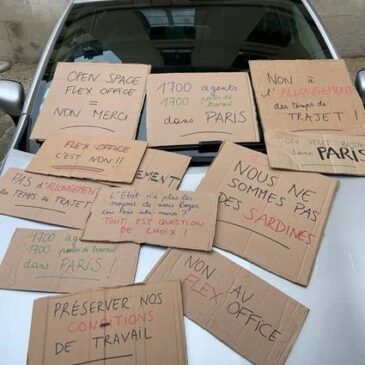 OPEN SPACE
FLEX OFFICE
=
NON MERCI
1700 agents
1700 postes de
travail
dans PARIS
NON à
l'ALLONGEMENT
des temps de
TRAJET !
FLEX OFFICE
C'EST NON !!
EMENT
ON VEUT RESTER
PARIS
PAS d'ALLONGEMENT
DU TEMPS DE TRAJET
L'Etat n'a plus les
moyens de nous loger
dans Paris intra-muros ?
TOUT EST QUESTION
DE CHOIX !
NOUS NE
SOMMES PAS
DES SARDINES
1700 agents
1700 postes de travail
dans PARIS !
NON AU
FLEX OFFICE
PRÉSERVER NOS
CONDITIONS
DE TRAVAIL